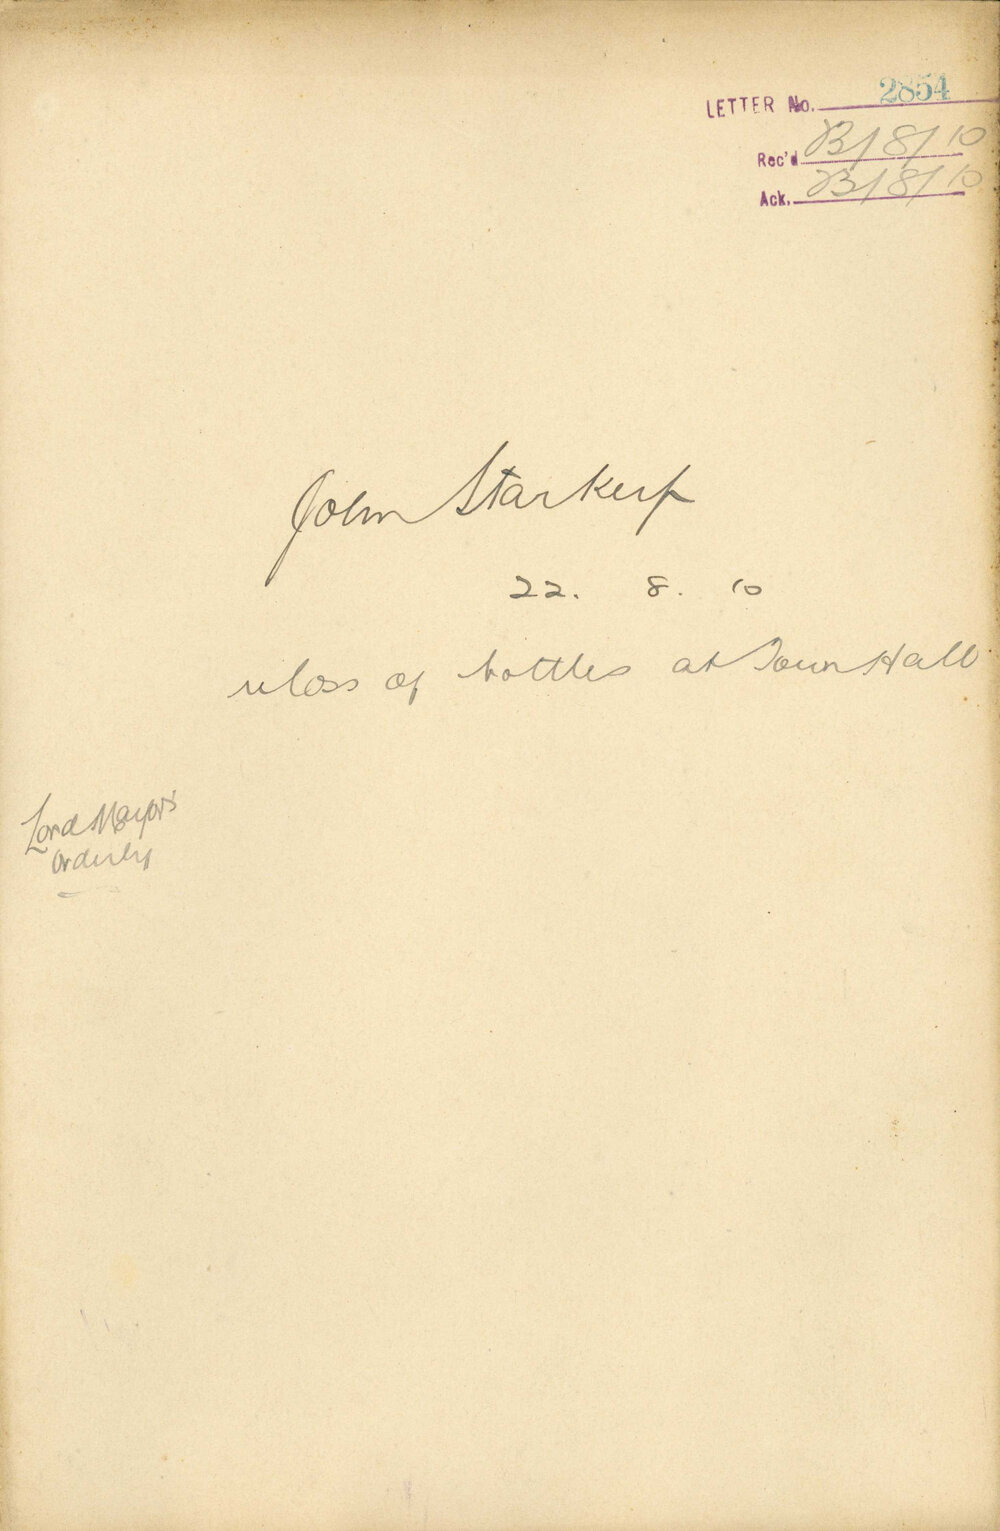 LETTER No. 2854
Rec'd 23/8/10
Ack. 23/8/10
John Starkey
22. 8. 10
re loss of bottles at Town Hall
Lord Mayor's
Orderly